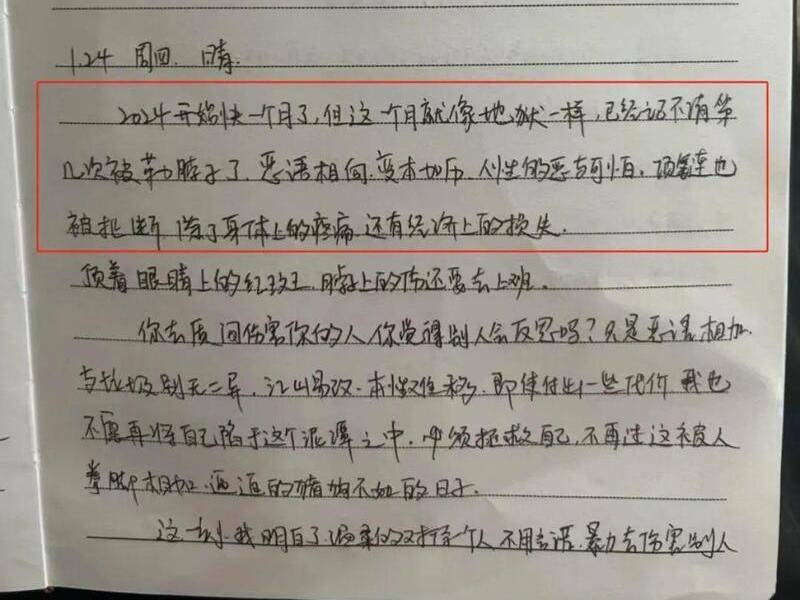 1.24 周四. 晴.
2024开始快一个月了,但这一个月就像地狱一样,已经记不清第
几次被勒脖子了.恶语相向.变本加厉.人性的恶与可怕。项链也
被扯断 除了身体上的疼痛 还有经济上的损失.
顶着眼睛上的红斑,脖子上的伤还要去上班。
你去质问伤害你的人你觉得别人会反思吗?只是恶语相加.
与垃圾别无二异,江山易改·本性难移.即使付出一些代价 我也
不愿再将自己陷于这个泥潭之中.必须拯救自己,不再过这被人
拳脚相加.逼逼的猪狗不如的日子.
这一刻.我明白了温柔的对待一个人 不用言语.暴力去伤害别人